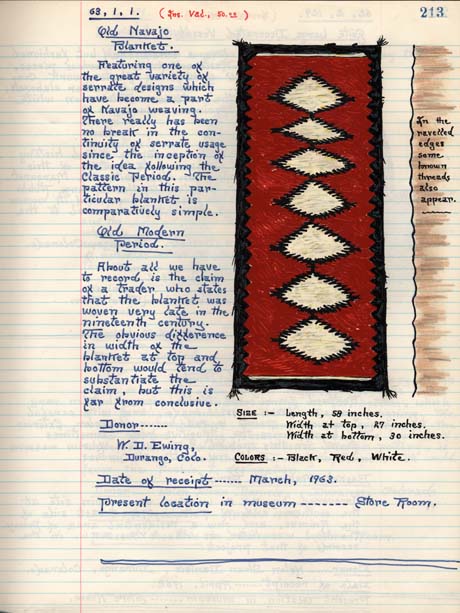 63, 1, 1. (Ins. Val., 50.00) 213
Old Navajo
Blanket.
Featuring one of
the great variety of
serrate designs which
have become a part
of Navajo weaving.
There really has been
no break in the con-
tinuity of serrate usage
since the inception of
the idea following the
Classic Period. The
pattern in this par-
ticular blanket is
comparatively simple.
Old Modern
Period.
About all we have
to record is the claim
of a trader who states
that the blanket was
woven very late in the
nineteenth century.
The obvious difference
in width of the
blanket at top and
bottom would tend to
substantiate the
claim, but this is
far from conclusive.
Donor-------
W. D. Ewing,
Durango, Colo.
In the
ravelled
edges
some
brown
threads
also
appear.
SIZE :- Length, 58 inches.
Width at top, 27 inches.
Width at bottom, 30 inches.
COLORS :- Black, Red, White.
Date of receipt ------- March, 1963.
Present location in museum ------- Store Room.